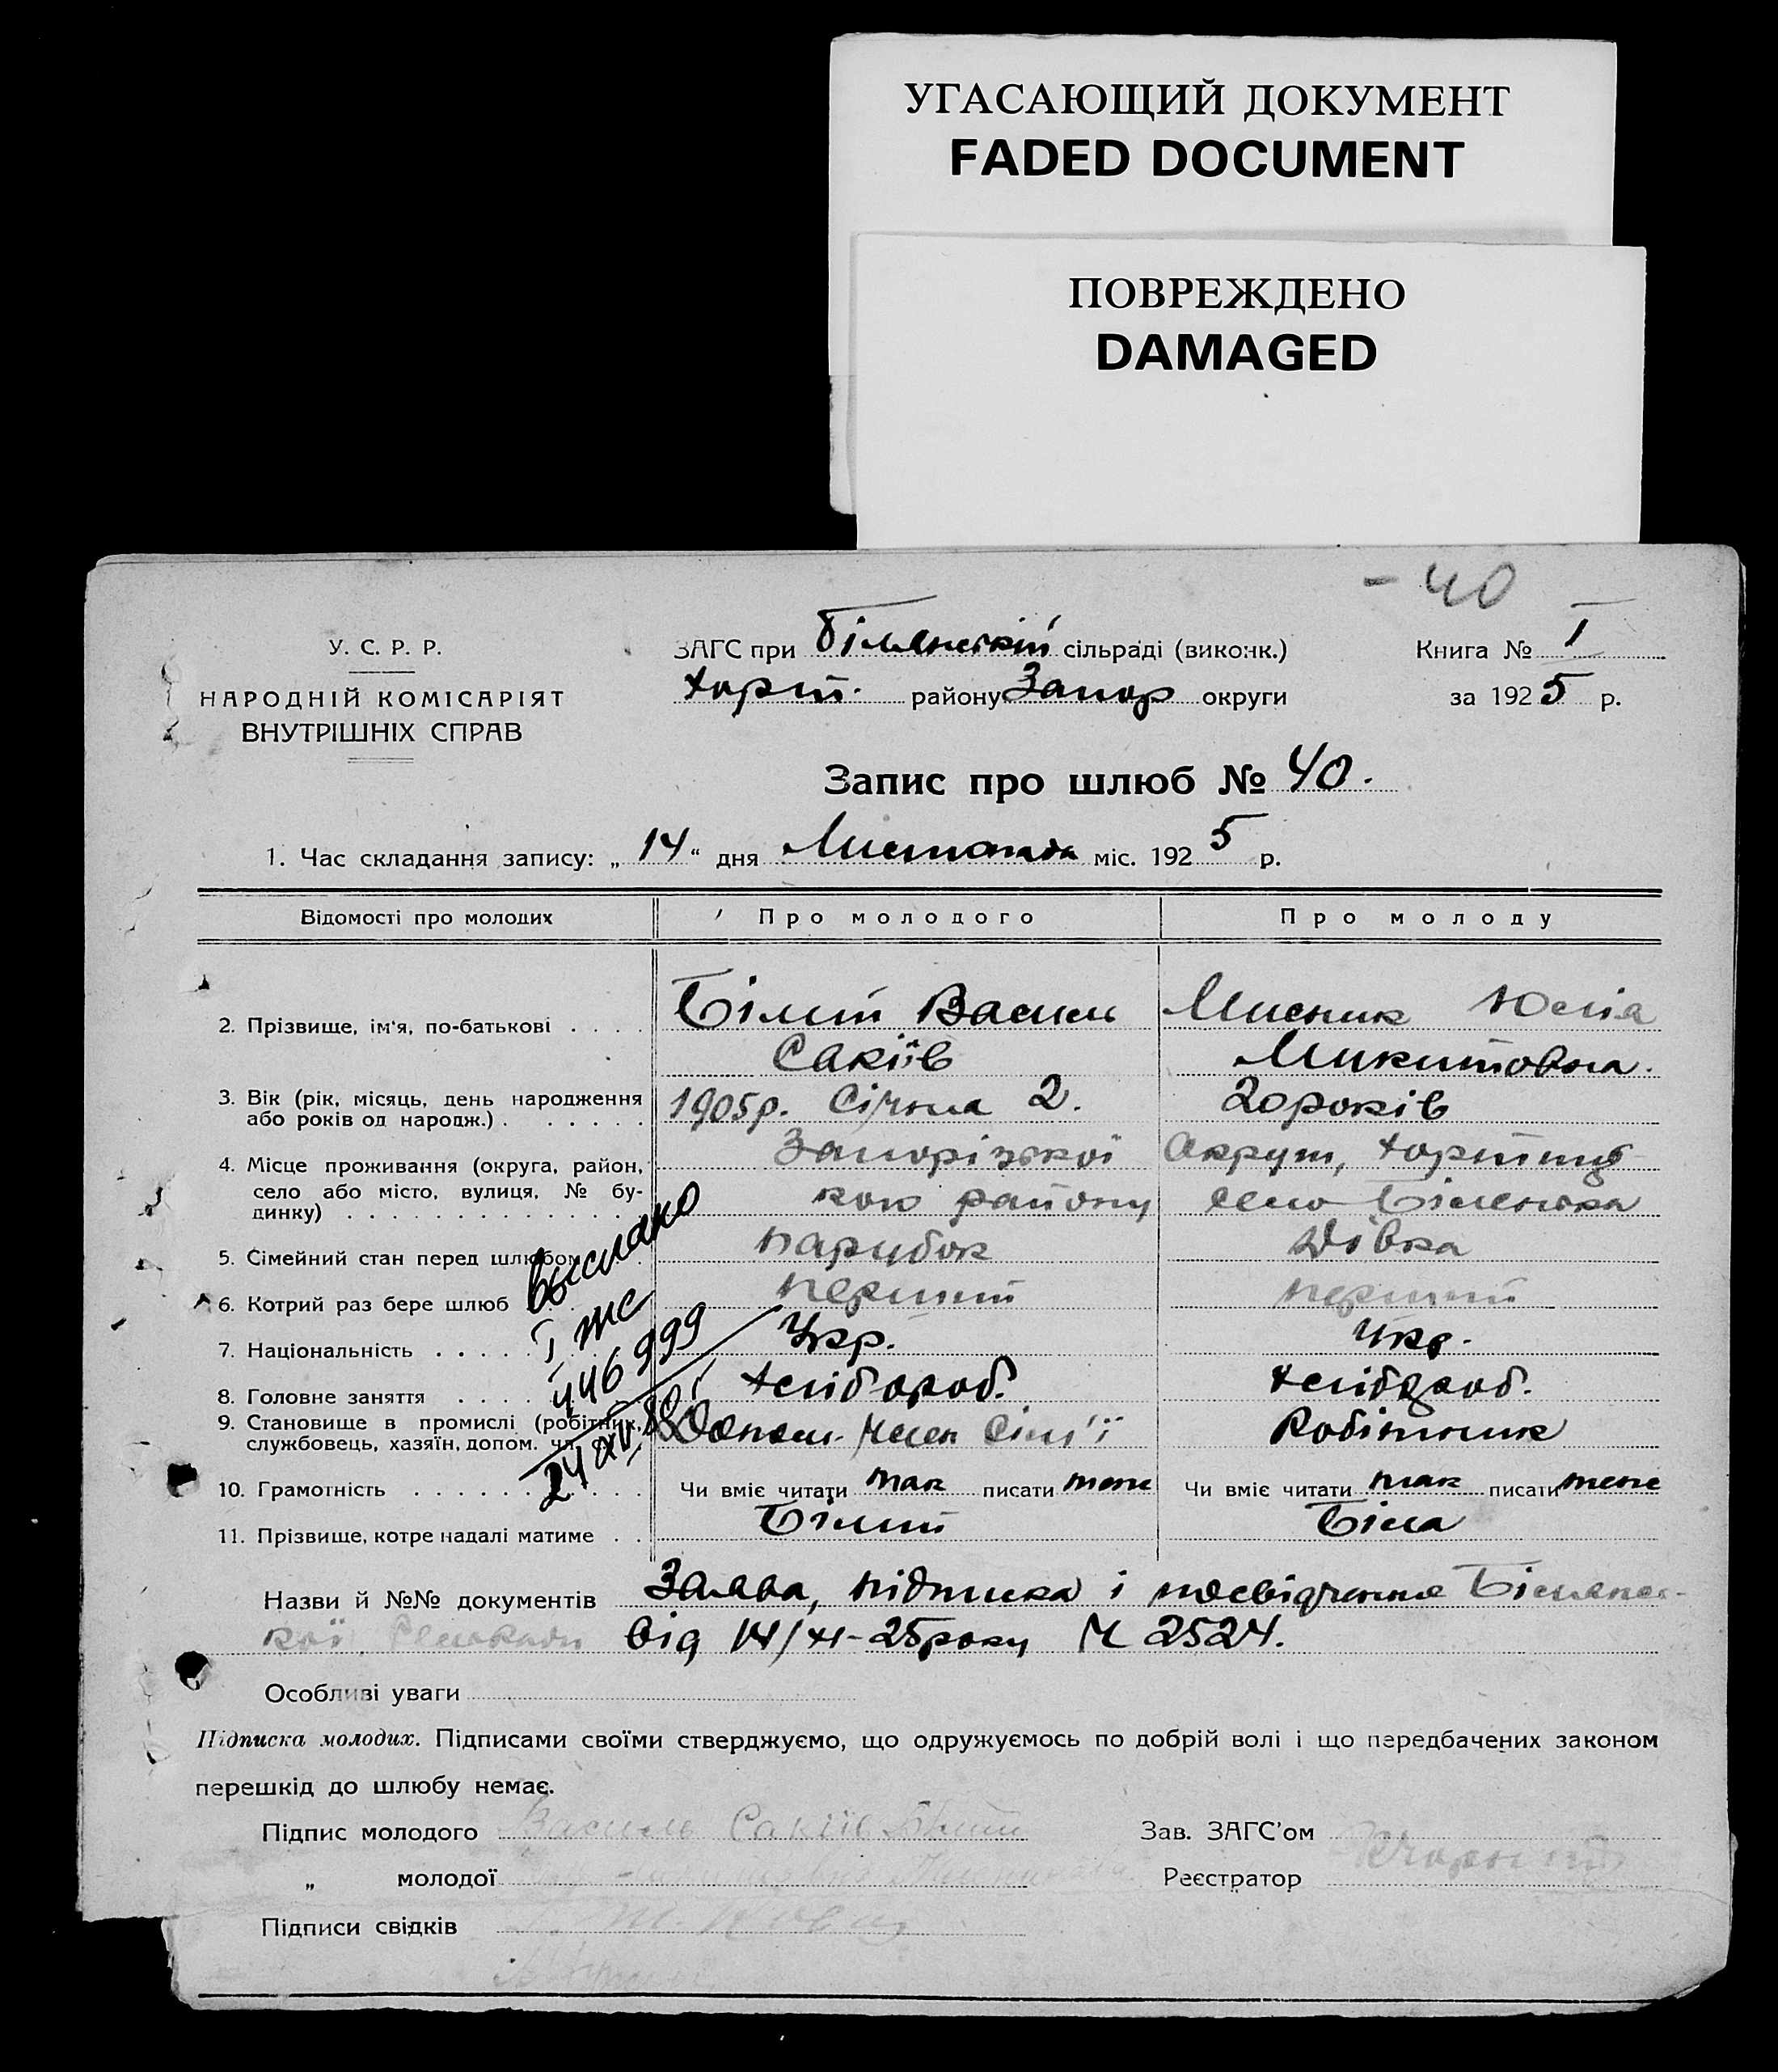 УГАСАЮЩИЙ ДОКУМЕНТ
FADED DOCUMENT
ПОВРЕЖДЕНО
DAMAGED
- 40
У. С. Р. Р.
НАРОДНІЙ КОМІСАРІЯТ
ВНУТРІШНІХ СПРАВ
ЗАГС при Біленській сільраді (виконк.)
Хорт. району Запор округи
Книга № I
за 1925 р.
Запис про шлюб № 40.
1. Час складання запису: „ 14 “ дня Листопада міс. 192 5 р.
Відомості про молодих Про молодого Про молоду
2. Прізвище, ім'я, по-батькові . . . . Білий Василь Мисник Юлія
Сакіїв Микитовна.
3. Вік (рік, місяць, день народження або років од народж.) . . . . . . 1905р. Січня 2. 20 років
4. Місце проживання (округа, район, село або місто, вулиця, № будинку) . . . Запорізької Округи, Хортиць
кого району село Біленька
5. Сімейний стан перед шлюбом . парубок дівка
6. Котрий раз бере шлюб перший перший
7. Національність . . . . . Укр. Укр.
8. Головне заняття . . . . хлібороб. хлібороб.
9. Становище в промислі (робітник, службовець, хазяїн, допом. чл. Допом. член сім'ї Робітник
10. Грамотність . . . . . Чи вміє читати так писати теж Чи вміє читати так писати теж
11. Прізвище, котре надалі матиме . . Білий Біла
выслано
I же
446999
Назви й №№ документів Заява, підписка і посвідчення Біленсь-
кої Сельради від 14/XI-25 року № 2524.
Особливі уваги
Підписка молодих. Підписами своїми стверджуємо, що одружуємось по добрій волі і що передбачених законом
перешкід до шлюбу немає.
Підпис молодого Василь Сакіїв Білий Зав. ЗАГС'ом
„ молодої Реєстратор
Підписи свідків